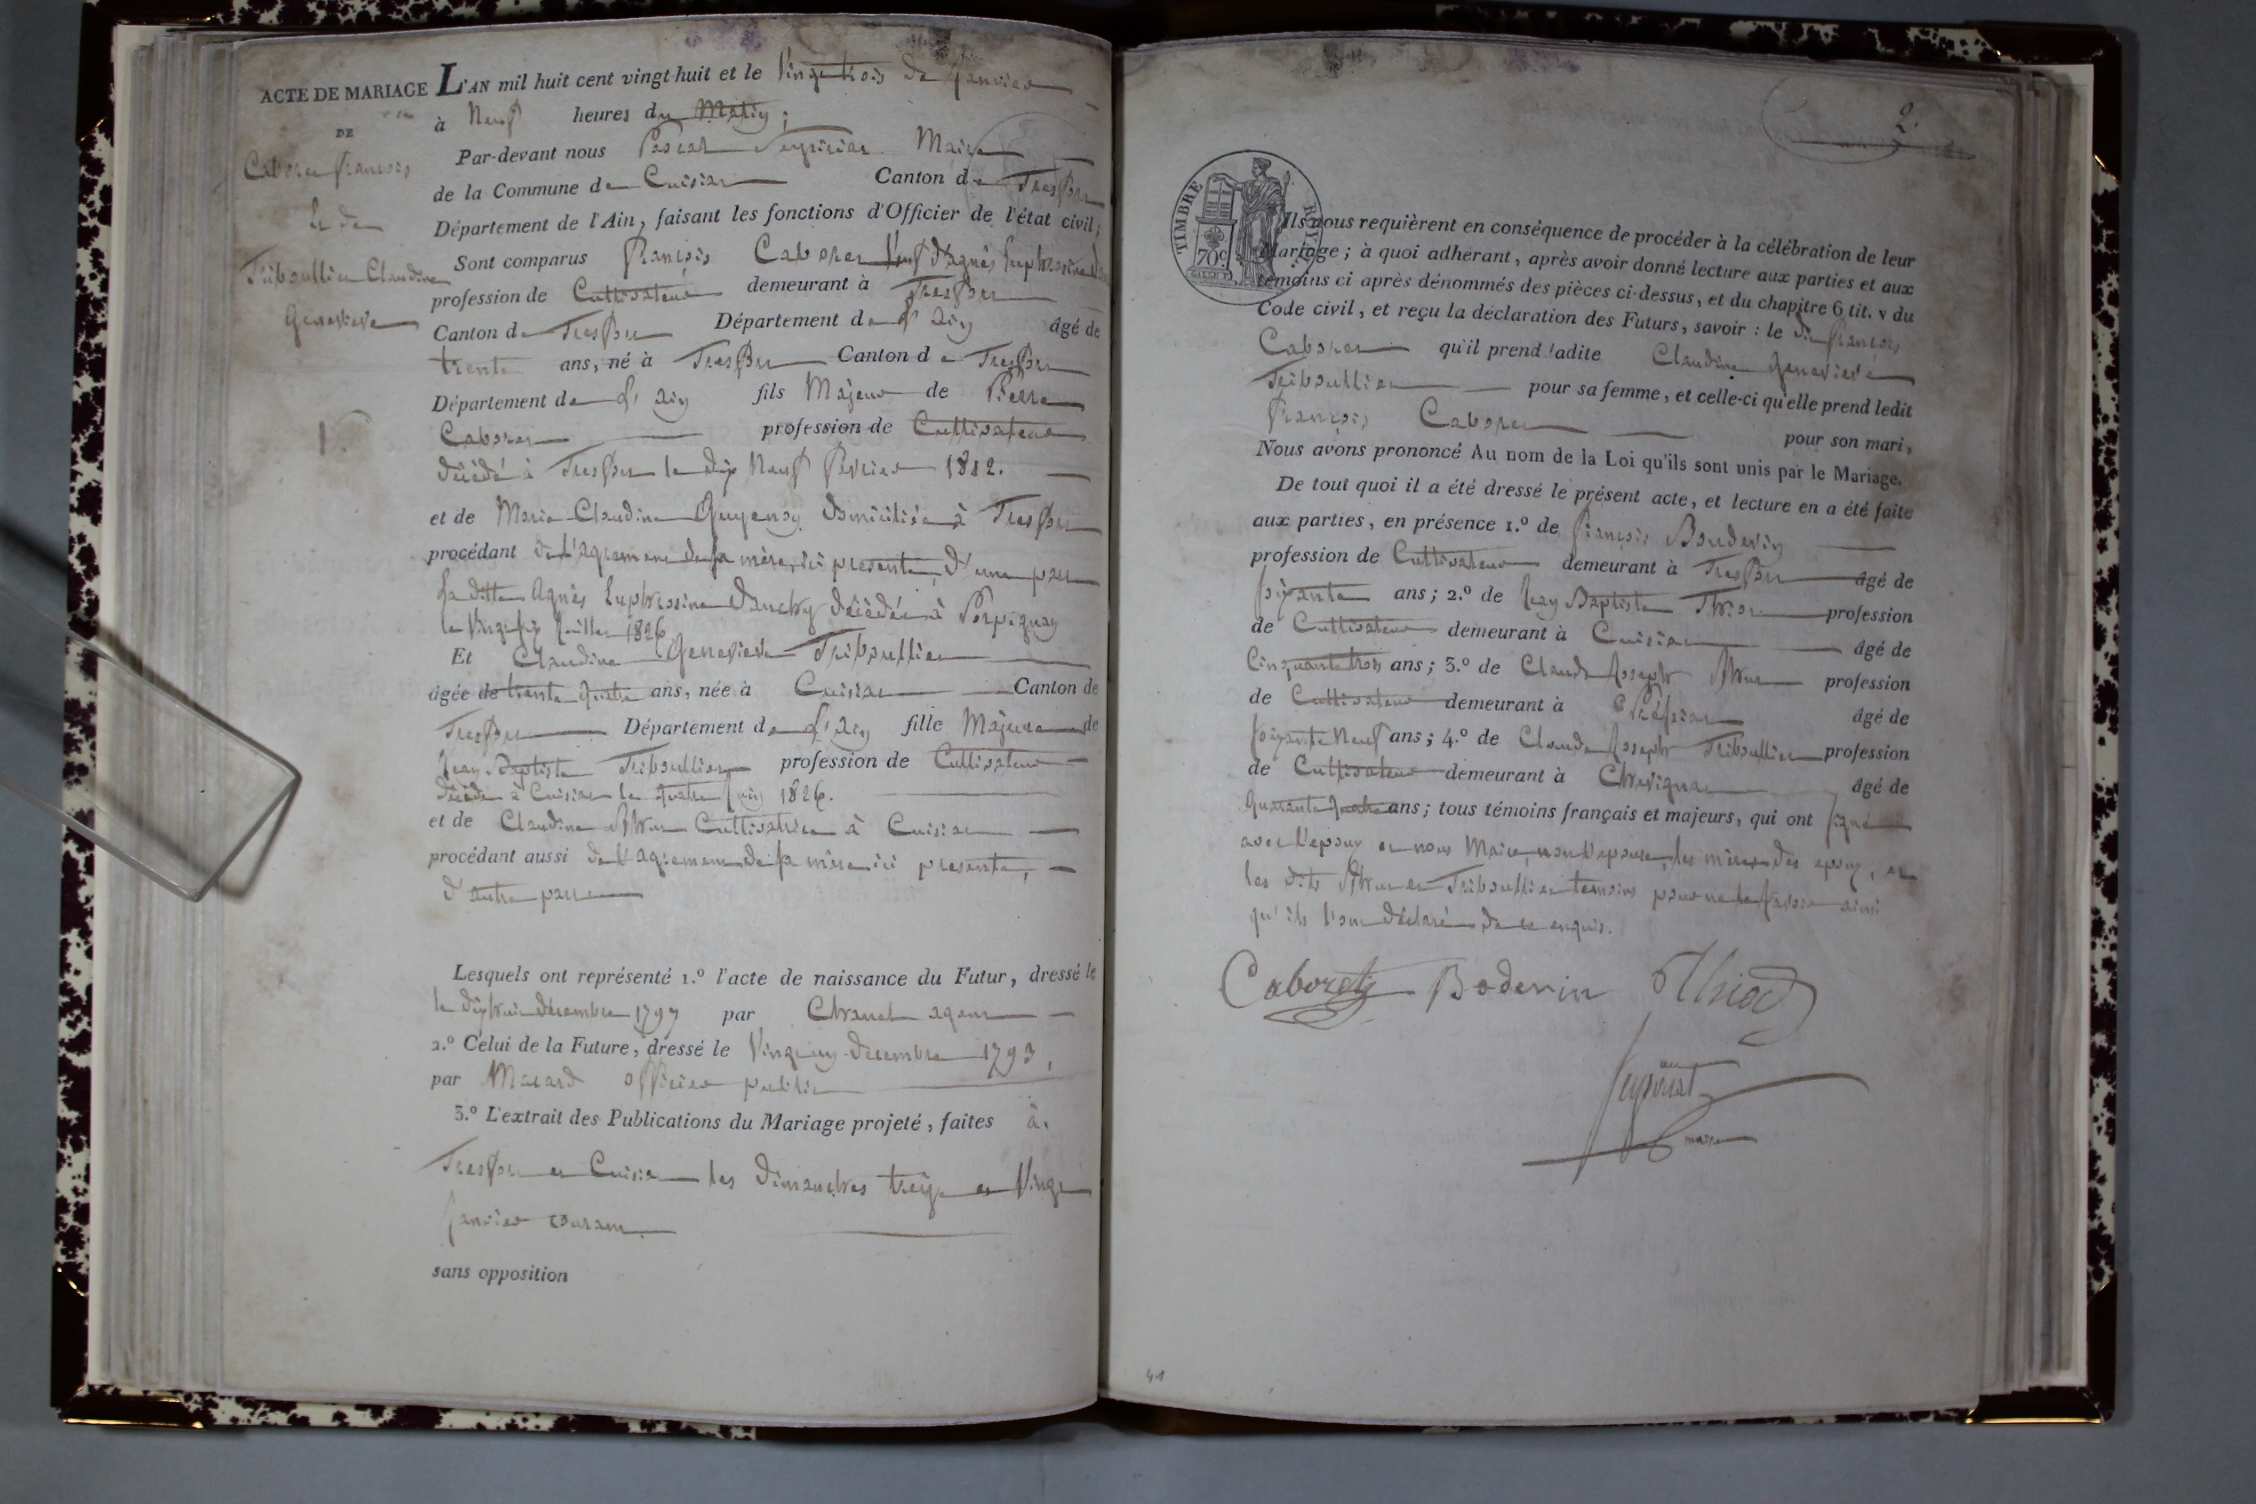 ACTE DE MARIAGE L'AN mil huit cent vingt-huit et le Vingt trois de Janvier
DE
à Neuf heures du Matin ;
Par-devant nous Pascal Maire
de la Commune de Cuisiat Canton de Treffort
Département de l'Ain, faisant les fonctions d'Officier de l'état civil;
Caboret François
et de
Triboullier Claudine
Genevieve
1.
Sont comparus François Caboret Veuf d'agnès
profession de Cultivateur demeurant à Treffort
Canton de Treffort Département de l'ain âgé de
trente ans, né à Treffort Canton de Treffort
Département de l'ain fils Majeur de Pierre
Caboret profession de Cultivateur
décédé à Treffort le dix Neuf fevrier 1812.
et de Marie Claudine domiciliée à Treffort
procédant de l'agrement de sa mère, ici presente, d'une part
la ditte Agnès décédée à Perpignan
le Juillet 1826
Et Claudine Genevieve Triboullier
âgée de trente quatre ans, née à Cuisiat Canton de
Treffort Département de l'ain fille Majeure de
Jean Baptiste Triboullier profession de Cultivateur
décédé à Cuisiat le quatre Juin 1826.
et de Claudine Cultivatrice à Cuisiat
procédant aussi de l'agrement de sa mère ici presente,
d'autre part
Lesquels ont représenté 1.º l'acte de naissance du Futur, dressé le
le dix huit décembre 1797 par agent
2.º Celui de la Future, dressé le Vingt un décembre 1793,
par officier public
3.º L'extrait des Publications du Mariage projeté, faites à
Treffort et Cuisiat les dimanches treize et Vingt
Janvier courant
sans opposition
2.
TIMBRE ROYAL
70c
Ils nous requièrent en conséquence de procéder à la célébration de leur
Mariage ; à quoi adhérant, après avoir donné lecture aux parties et aux
témoins ci après dénommés des pièces ci-dessus, et du chapitre 6 tit. v du
Code civil, et reçu la déclaration des Futurs, savoir : le dit François
Caboret qu'il prend ladite Claudine Genevieve
Triboullier pour sa femme, et celle-ci qu'elle prend ledit
François Caboret pour son mari,
Nous avons prononcé Au nom de la Loi qu'ils sont unis par le Mariage.
De tout quoi il a été dressé le présent acte, et lecture en a été faite
aux parties, en présence 1.º de François Bouderin
profession de Cultivateur demeurant à Treffort âgé de
soixante ans ; 2.º de Jean Baptiste profession
de Cultivateur demeurant à Cuisiat âgé de
Cinquante trois ans ; 3.º de Claude Joseph profession
de Cultivateur demeurant à âgé de
soixante Neuf ans ; 4.º de Claude Joseph Triboullier profession
de Cultivateur demeurant à âgé de
quarante quatre ans ; tous témoins français et majeurs, qui ont signé
avec l'epoux et nous Maire, non l'epouse, les mères des epoux, et
les dits et Triboullier temoins pour ne le savoir ainsi
qu'ils l'ont déclaré de ce enquis.
Caboret Boderin Thiod
maire
41